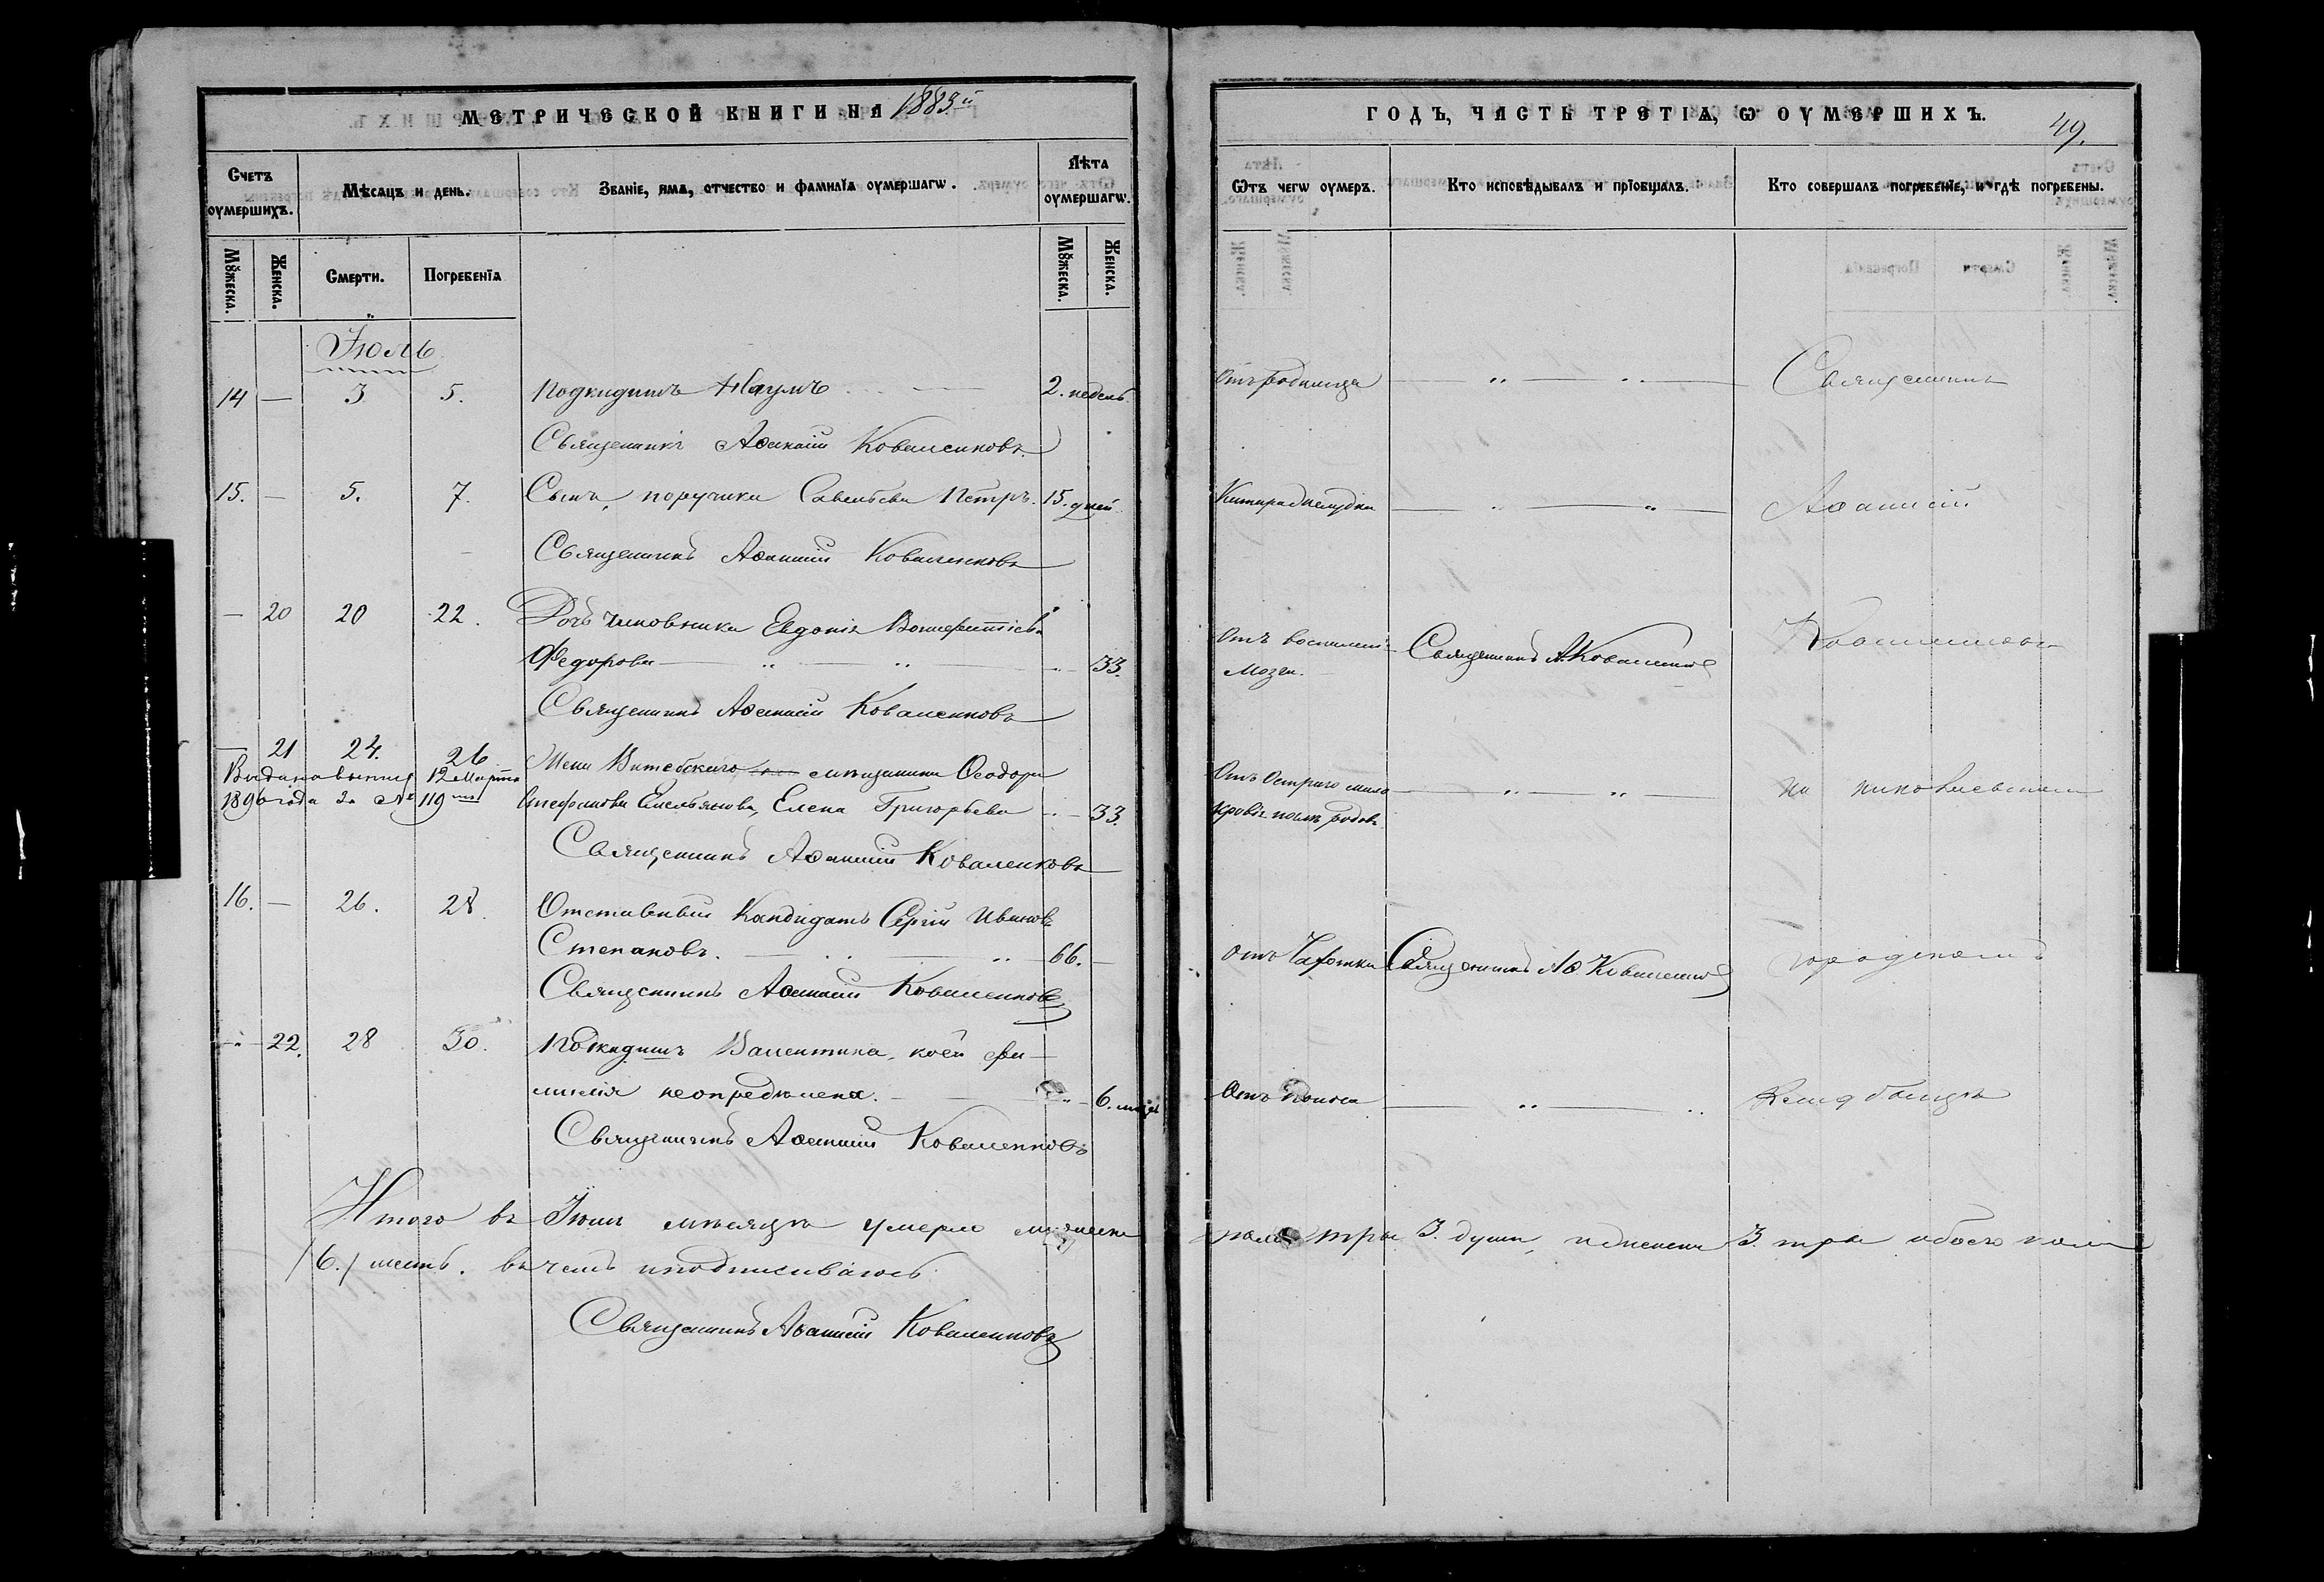 МЕТРИЧЕСКОЙ КНИГИ НА 1883й
Счетъ оумершихъ.
Мѣсяцъ и день.
Званіе, имя, отчество и фамилїя оумершагѡ.
Лѣта оумершагѡ.
Мꙋжеска.
Женска.
Смерти.
Погребенїя
Мꙋжеска.
Женска.
Іюль
14 — 3 5. Подкидышъ Наумъ 2. недель
Священникъ Аѳанасій Коваленковъ
15. — 5. 7. Сынъ поручика Савельева Петръ. 15. дней
Священникъ Аѳанасій Коваленковъ
— 20 20 22. Дочь чиновника Евдокія
Федорова — „ — „ 33.
Священникъ Аѳанасій Коваленковъ
— 21 24. 26 Жена Витебскаго мѣщанина Ѳеодора
Выдана выпись 12 Марта
1896 года за № 119
Стефанова Емельянова, Елена Григорьева — 33.
Священникъ Аѳанасій Коваленковъ
16. — 26. 28. Отставной Кандидатъ Сергій Ивановъ
Степановъ. — „ — „ 66. —
Священникъ Аѳанасій Коваленковъ
— 22. 28 30. Подкидышъ Валентина, коей фа-
милія неопредѣлена. — 6. мѣсяц
Священникъ Аѳанасій Коваленковъ
Итого въ Іюлѣ мѣсяцѣ умерло мужеска
/6./ шесть. въ чемъ и подписываюсь
Священникъ Аѳанасій Коваленковъ
ГОДЪ, ЧАСТЬ ТРЕТІѦ, Ѡ ОУМЕРШИХЪ.
49.
Ѿтъ чегѡ оумеръ.
Кто исповѣдывалъ и прїобщалъ.
Кто совершалъ погребенїе, и гдѣ погребены.
Отъ родимца — „ — „ — Священникъ
Катара желудка — „ — „ — Аѳанасій
Отъ воспален: Священникъ А. Коваленковъ Коваленковъ
мозга.
Отъ Остраго мало — „ — „ — на николаевскомъ
кровія послѣ родовъ
Отъ Чахотки Священникъ Аѳ Коваленковъ городскомъ
Отъ поноса — „ — „ кладбищѣ
пола три 3. души, и женска 3. три обоего пола